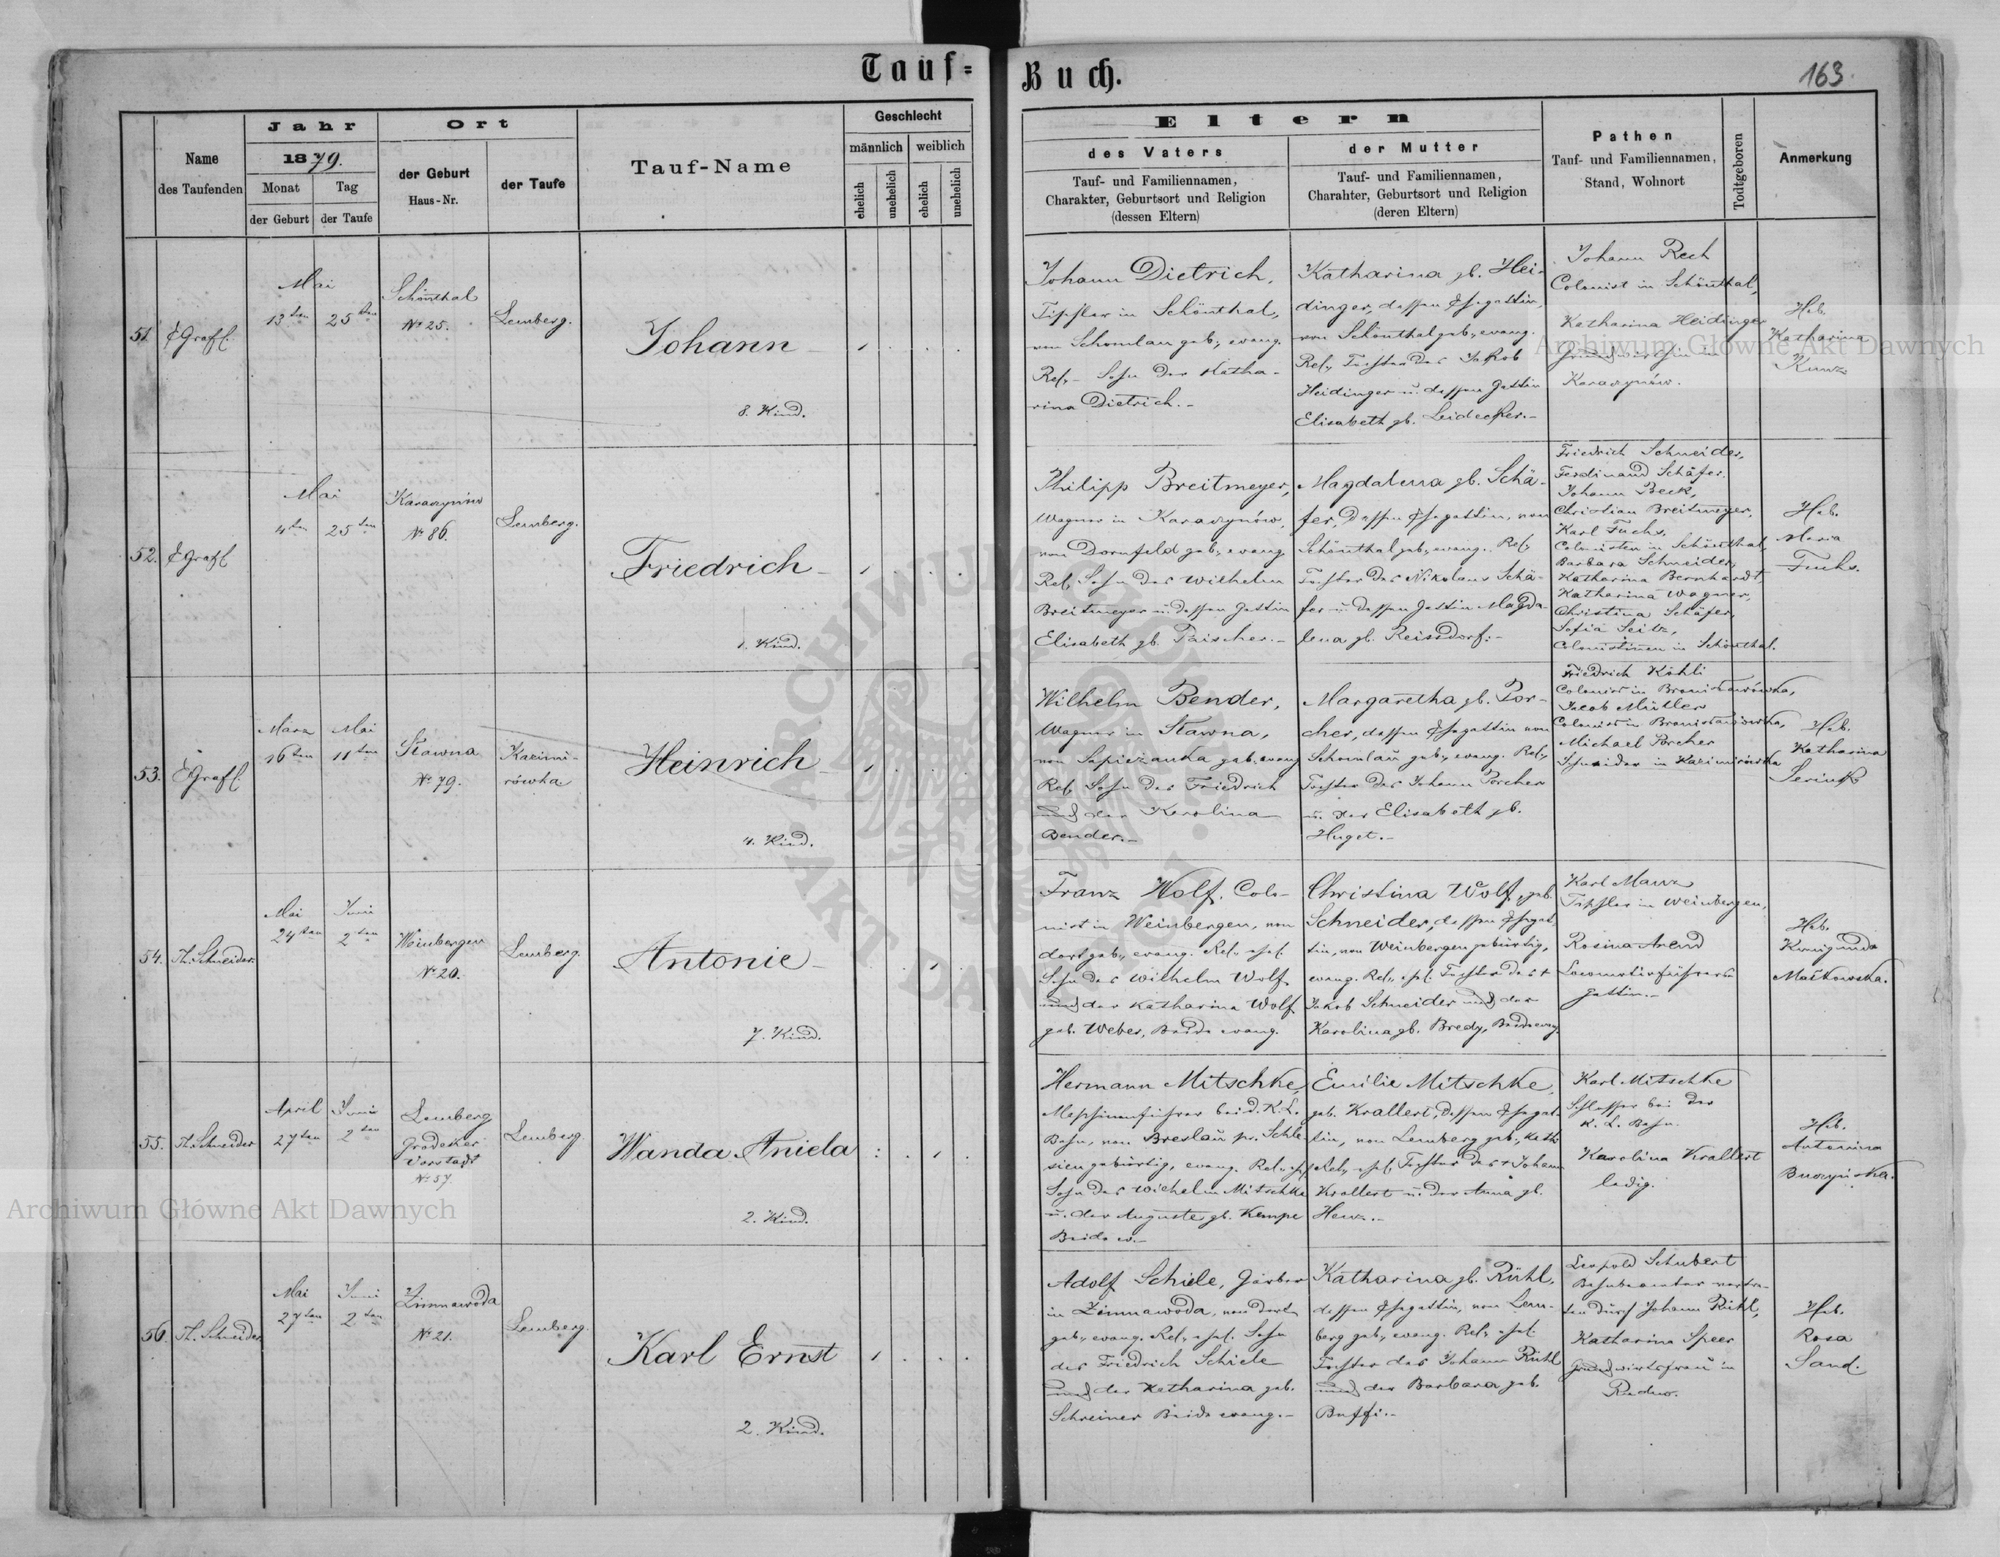 Tauf=
Buch.
163.
Name
des Taufenden
Jahr
1879.
Monat
der Geburt
Tag
der Taufe
Ort
der Geburt
Haus-Nr.
der Taufe
Tauf-Name
Geschlecht
männlich
weiblich
ehelich
unehelich
ehelich
unehelich
Eltern
des Vaters
Tauf- und Familiennamen,
Charakter, Geburtsort und Religion
(dessen Eltern)
der Mutter
Tauf- und Familiennamen,
Charahter, Geburtsort und Religion
(deren Eltern)
Pathen
Tauf- und Familiennamen,
Stand, Wohnort
Todtgeboren
Anmerkung
51
Mai
13ten
25ten
Schönthal
No 25.
Lemberg.
Johann
8. Kind.
Johann Dietrich,
in Schönthal,
von Schomlau geb., evang.
Rel., Sohn der Katha-
rina Dietrich.-
Katharina gb. Hei-
dinger, dessen Ehegattin,
von Schönthal geb., evang.
Rel., Tochter des Jakob
Heidinger u. dessen Gattin
Elisabeth gb. Leidecker.-
Johann Rech
Colonist in Schönthal,
Katharina Heidinger
in
Karaczynów.
Heb.
Katharina
Kunz
52.
Mai
4ten
25ten
Karaczynów
No 86.
Lemberg.
Friedrich
1. Kind.
Philipp Breitmeyer,
Wagner in Karaczynów,
von Dornfeld geb., evang.
Rel., Sohn des Wilhelm
Breitmeyer u. dessen Gattin
Elisabeth gb.
Magdalena gb. Schä-
fer, dessen Ehegattin, von
Schönthal geb., evang. Rel.,
Tochter des Nikolaus Schä-
fer u. dessen Gattin Magda-
lena gb. Reissdorf.-
Friedrich Schneider,
Ferdinand Schäfer,
Johann Beck,
Christian Breitmeyer,
Karl Fuchs,
Colonisten in Schönthal,
Barbara Schneider,
Katharina Bernhardt,
Katharina Wagner,
Christina Schäfer,
Sofia Seitz,
Colonistinen in Schönthal.
Heb.
Maria
Fuchs.
53.
März
16ten
Mai
11ten
Stawna
No 79.
Kazimi-
rówka
Heinrich
4. Kind.
Wilhelm Bender,
Wagner in Stawna,
von Sapiezanka geb. evang.
Rel., Sohn des Friedrich
und der Karolina
Bender.-
Margaretha gb. Por-
cher, dessen Ehegattin von
Schomlau geb., evang. Rel.,
Tochter des Johann Porcher
u. der Elisabeth gb.
Huget.-
Friedrich Köhli
Colonist in Bronislawówka,
Jacob Müller
Colonist in Bronislawówka,
Michael Porcher
Schneider in Kazimirówka
Heb.
Katharina
54.
Th. Schneider.
Mai
24ten
Juni
2ten
Weinbergen
No 20.
Lemberg.
Antonie
7. Kind.
Franz Wolf, Colo-
nist in Weinbergen, von
dort geb., evang. Rel., ehel.
Sohn des Wilhelm Wolf
und der Katharina Wolf
geb. Weber, Beide evang.
Christina Wolf, geb.
Schneider, dessen Ehegat-
tin, von Weinbergen gebürtig,
evang. Rel., ehel. Tochter des +
Jakob Schneider und der
Karolina gb. Bredy, Beide evang.
Karl Manz
in Weinbergen,
Rosina Arend
Locomotivführers
Gattin.-
Heb.
Kunigunda
Maćkowska.
55.
Th. Schneider
April
27ten
Juni
2ten
Lemberg
Grodeker
Vorstadt
No 57
Lemberg.
Wanda Aniela
2. Kind.
Hermann Mitschke,
Maschinenführer bei d. K. L.
Bahn, von Breslau pr. Schle-
sien gebürtig, evang. Rel., ehel.
Sohn des Wilhelm Mitschke
u. der Auguste gb. Kempe
Beide ev.-
Emilie Mitschke,
geb. Krallert, dessen Ehegat-
tin, von Lemberg geb., kath.
Rel., ehel. Tochter des + Johann
Krallert u. der Anna gb.
Henz.-
Karl Mitschke
Schlosser bei der
K. L. Bahn.
Karolina Krallert
ledig.
Heb.
Antonina
56.
Th. Schneider
Mai
27ten
Juni
2ten
Zimnawoda
No 21.
Lemberg.
Karl Ernst
2. Kind.
Adolf Schiele, Gärber
in Zimnawoda, von dort
geb., evang. Rel., ehel. Sohn
des Friedrich Schiele
und der Katharina geb.
Schreiner Beide evang.-
Katharina gb. Rühl,
dessen Ehegattin, von Lem-
berg geb., evang. Rel., ehel.
Tochter des Johann Rühl
und der Barbara geb.
Leopold Schubert
Bahnbeamter vertre-
ten durch Johann Rühl,
Katharina Speer
Grundwirtsfrau in
Rudno.
Heb.
Rosa
Sand.
Archiwum Główne Akt Dawnych
Archiwum Główne Akt Dawnych
ARCHIWUM GŁÓWNE AKT DAWNYCH